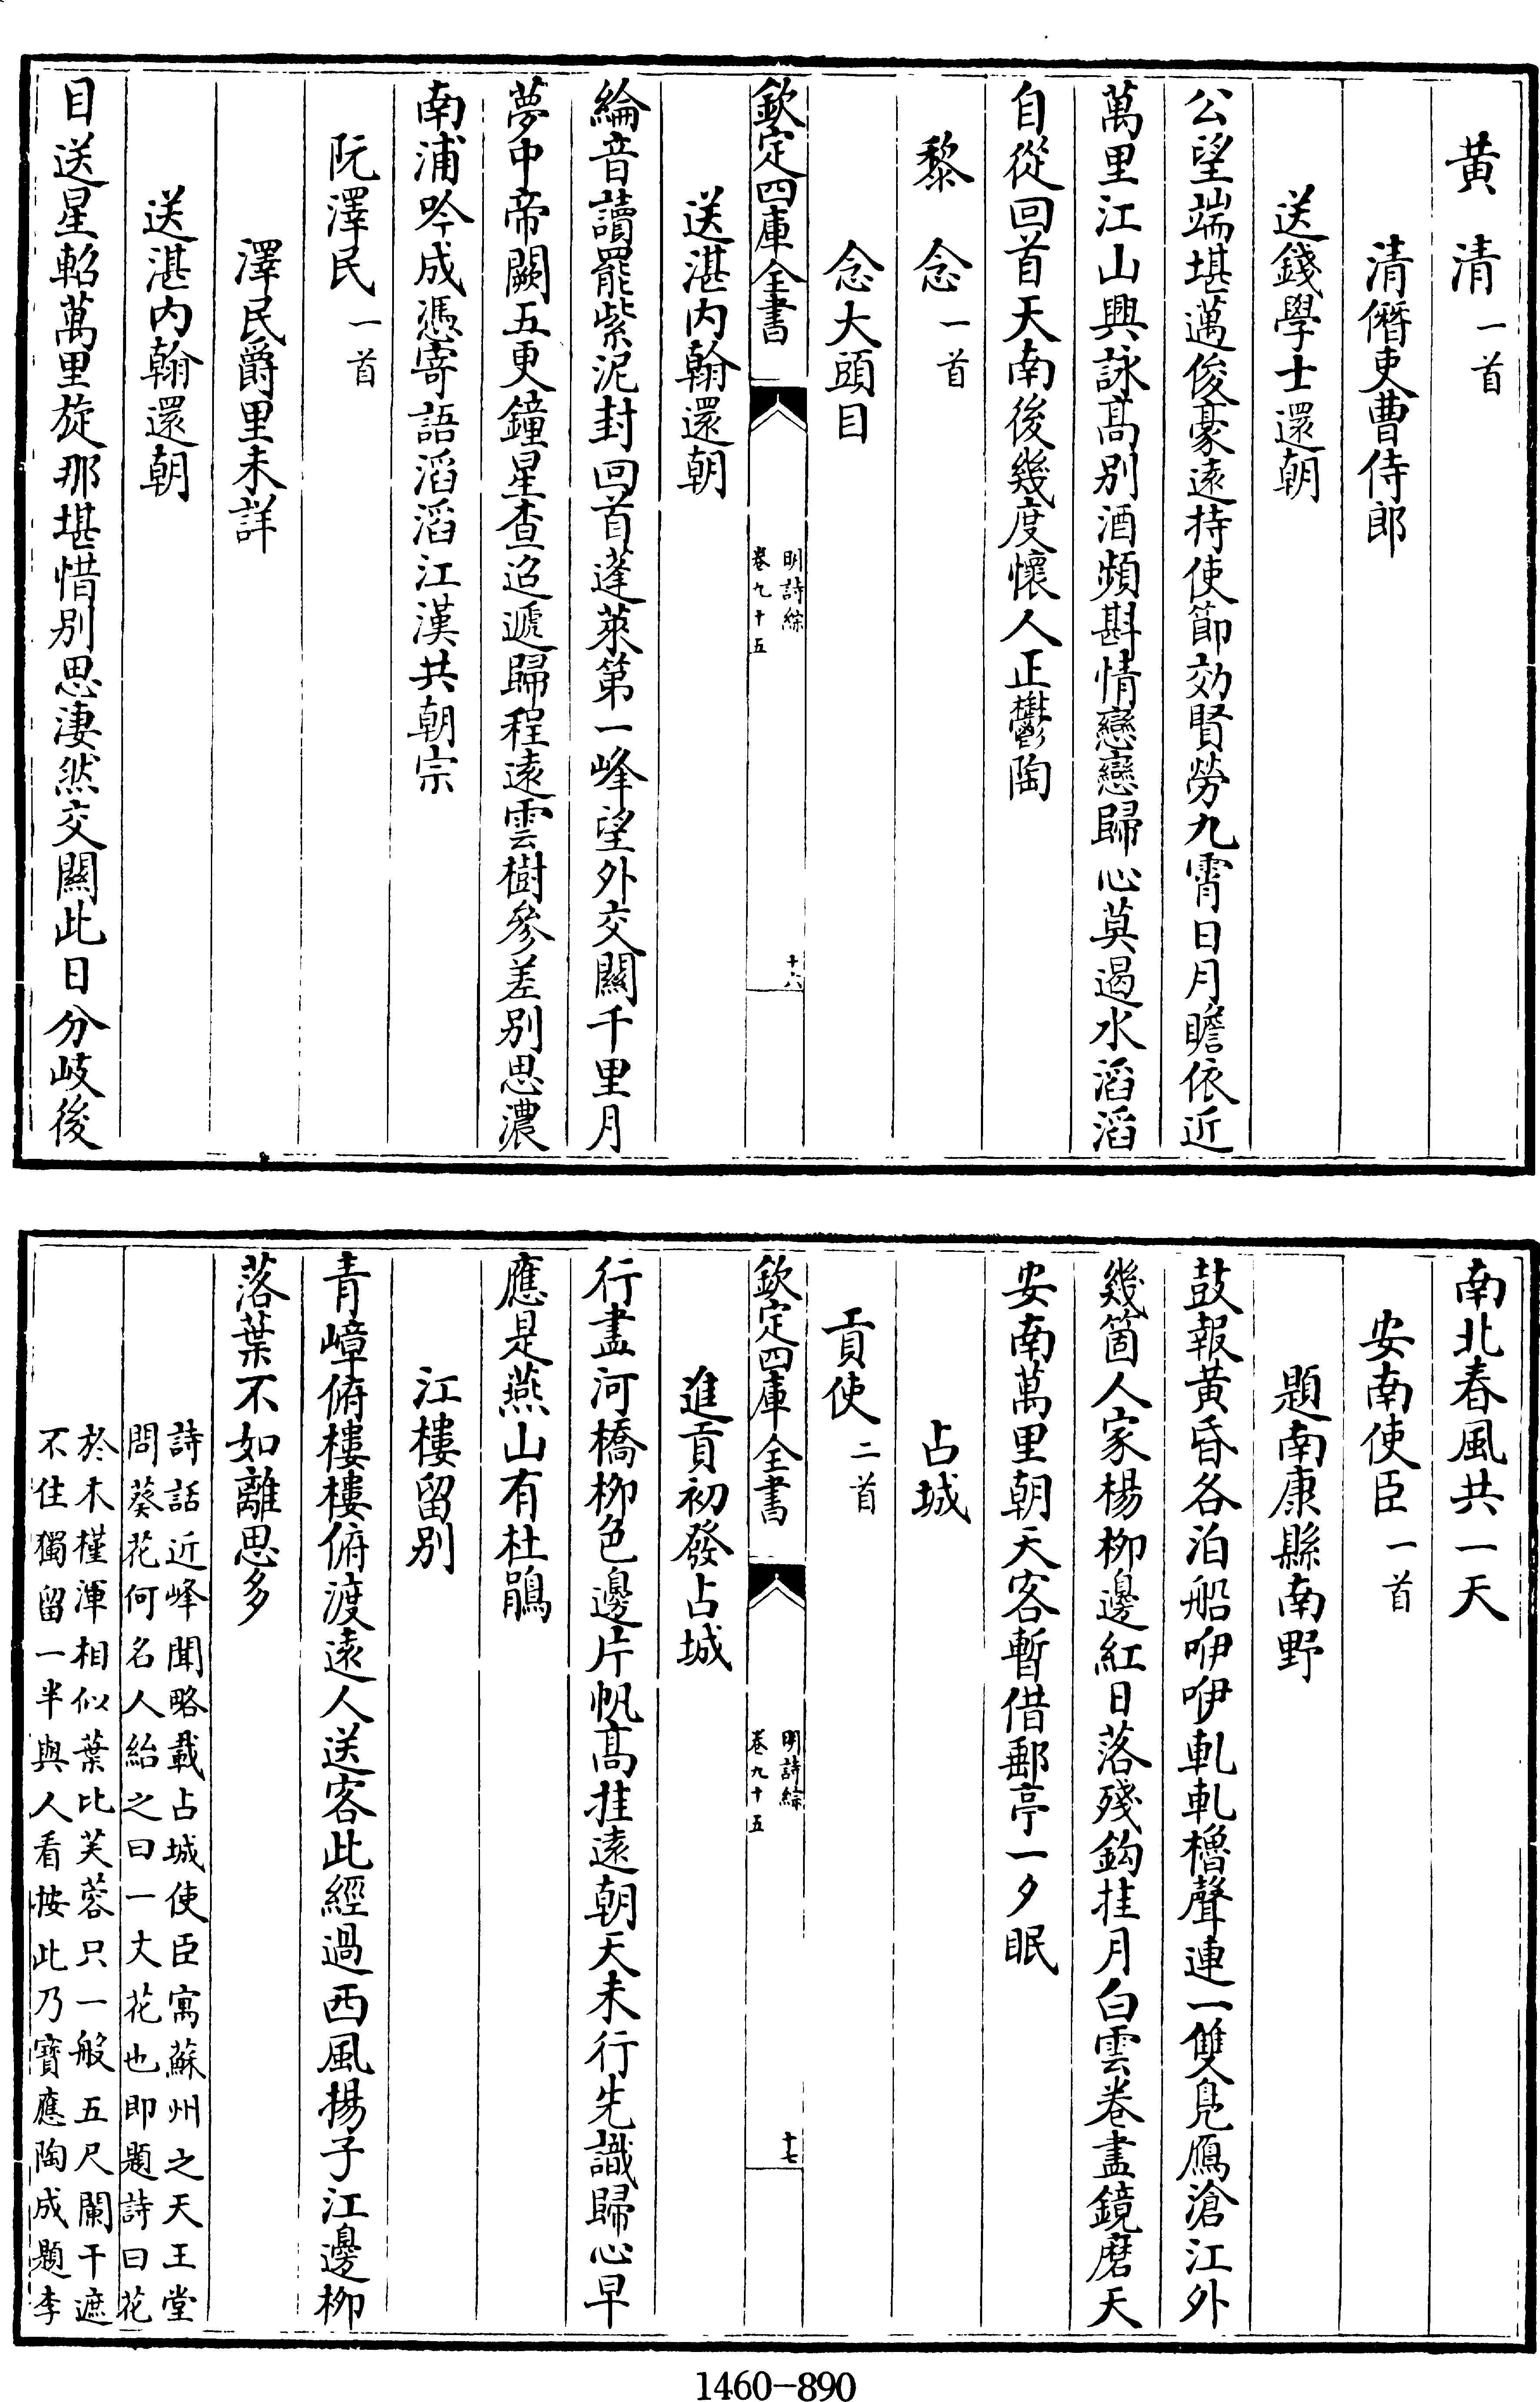 黄清一首
清僭吏曹侍郎
送錢學士還朝
公望端堪邁俊豪遠持使節効賢勞九霄日月瞻依近
萬里江山興詠髙別酒頻斟情戀戀歸心莫遏水滔滔
自從回首天南後幾度懷人正鬱陶
黎念一首
念大頭目
欽定四庫全書
明詩綜
卷九十五
十六
送湛内翰還朝
綸音讀罷紫泥封回首蓬萊第一峰望外交闗千里月
夢中帝闕五更鐘星查迢遞歸程遠雲樹參差别思濃
南浦吟成憑寄語滔滔江漢共朝宗
阮澤民一首
澤民爵里未詳
送湛内翰還朝
目送星軺萬里旋那堪惜别思淒然交闗此日分岐後
南北春風共一天
安南使臣一首
題南康縣南野
鼓報黄昏各泊船咿咿軋軋櫓聲連一雙鳬鴈滄江外
幾箇人家楊柳邊紅日落殘鈎挂月白雲卷盡鏡磨天
安南萬里朝天客暫借郵亭一夕眠
占城
貢使二首
欽定四庫全書
明詩綜
卷九十五
十七
進貢初發占城
行盡河橋柳色邊片帆髙挂遠朝天未行先識歸心早
應是燕山有杜鵑
江樓留别
青嶂俯樓樓俯渡遠人送客此經過西風揚子江邊柳
落葉不如離思多
詩話近峰聞略載占城使臣寓蘇州之天王堂
問葵花何名人紿之曰一丈花也即題詩曰花
於木槿渾相似葉比芙蓉只一般五尺闌干遮
不住獨留一半與人看按此乃寶應陶成題李
1460-890